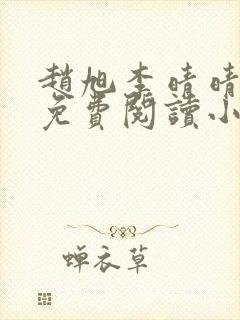 趙旭李晴晴
免費閱讀小
蝉衣草